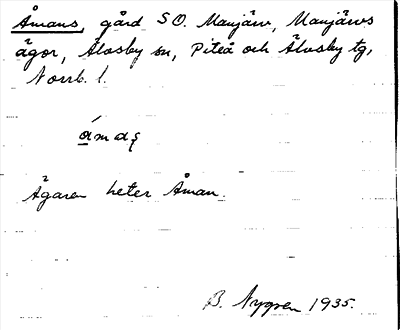 Åmans, gård SO. Manjärv, Manjärvs
ägor, Älvsby sn, Piteå och Älvsby tg,
Norrb. l.
Ägaren heter Åman.
B. Nygren 1935.